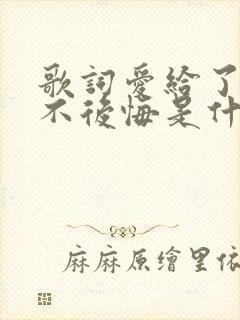 歌詞愛給了
不後悔是什
麻麻原繪里依